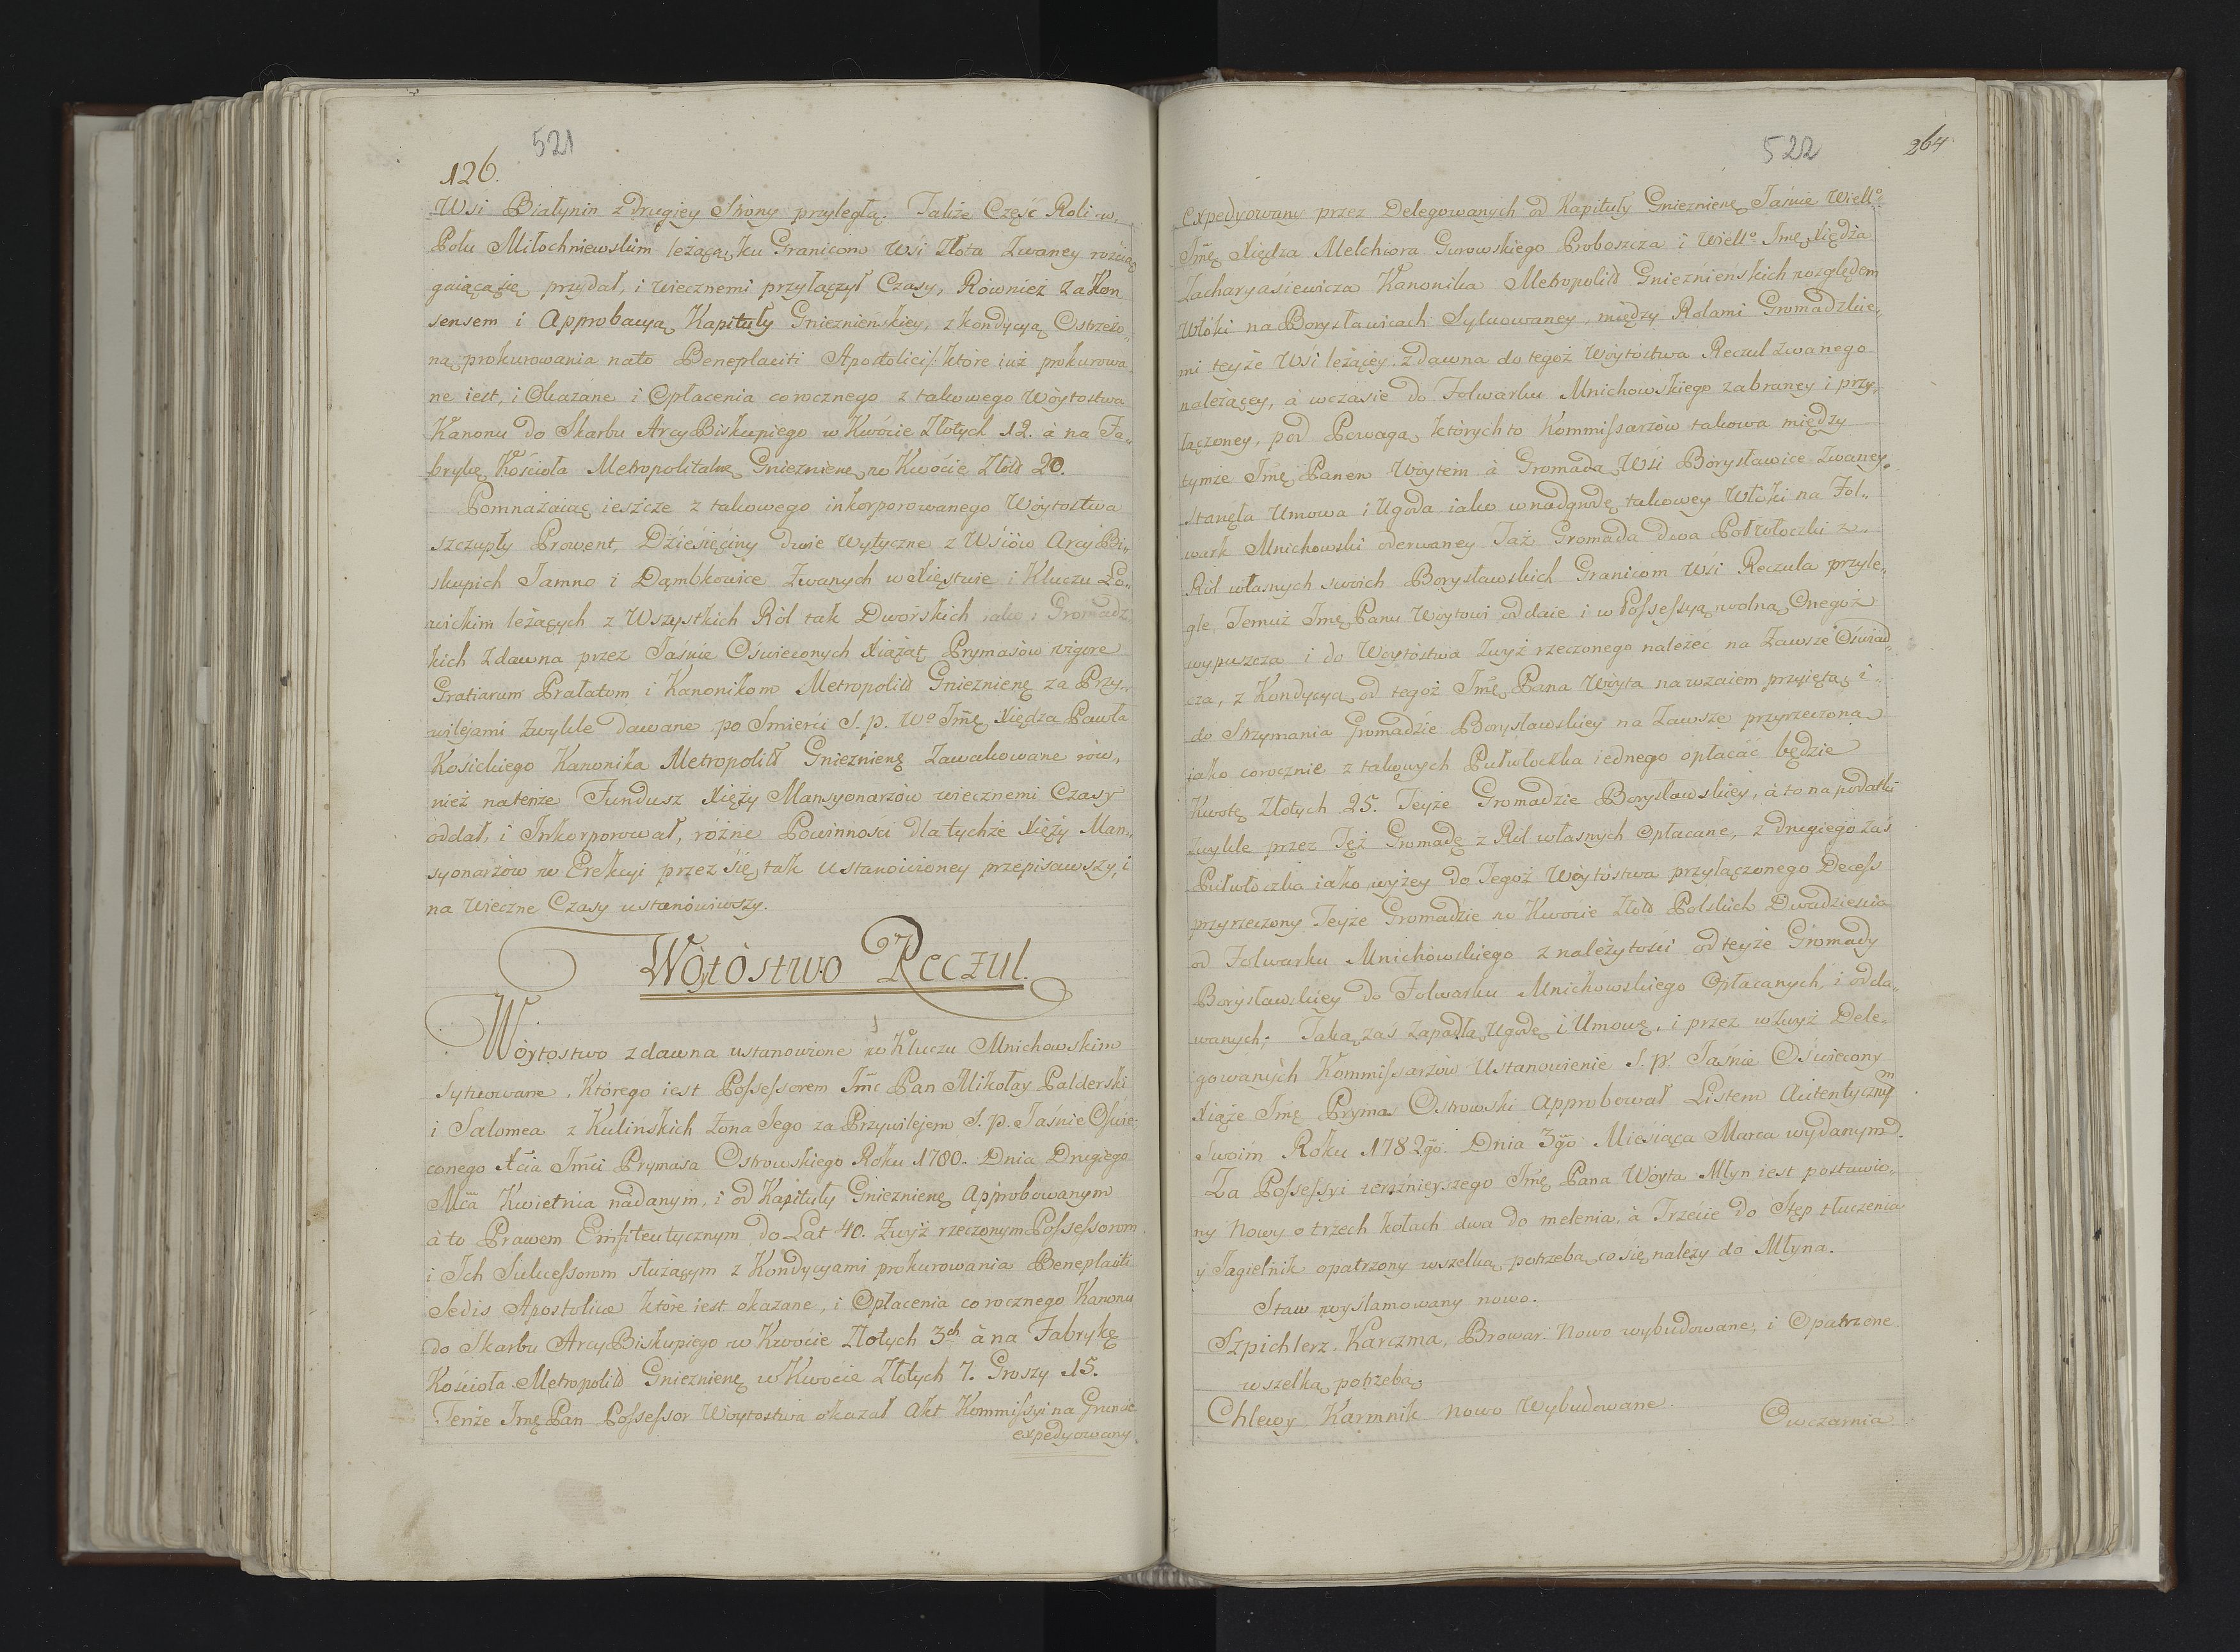 521
126.
Wsi Białynin z drugiey Strony przyległą. Także Część Roli w„
Polu Miłochniewskim leżącą, ku Granicom Wsi Złota Zwaney rozcią„
gaiącą się przydał, i wiecznemi przyłączył Czasy, Również za Kon„
sensem i Approbacyą Kapituły Gnieznieńskiey, z kondycyą Ostrzeżo„
ną prokurowania nato Beneplaciti Apostolici /: które iuż prokurowa„
ne iest, i Okazane i Opłacenia corocznego z takowego Wóytostwa
Kanonu do Skarbu ArcyBiskupiego w Kwocie Złotych 12. à na Fa„
brykę Kościoła Metropolitalnę Gnieznienę w Kwocie Złłd 20.
Pomnażaiąc ieszcze z takowego inkorporowanego Wóytostwa
szczupły Prowent, Dziesięciny dwie wytyczne z Wsiów ArcyBi„
skupich Jamno i Dąmbkowice Zwanych w Xięstwie i Kluczu Ło„
wickim leżących z Wszystkich Ról tak Dworskich iako i Gromadz„
kich zdawna przez Jaśnie Oświeconych Xiążąt Prymasów vigore
Gratiarum Prałatom i Kanonikom Metropolid Gnieznienę za Przy„
wilejami zwykle dawane po Smierci S. p. Wo Jmę Xiędza Pawła
Kosickiego Kanonika Metropolid Gnieznienę Zawakowane rów„
nież natenże Fundusz Xięży Mansyonarzów wiecznemi Czasy
oddał, i Inkorporował, różne Powinności dla tychże Xięży Man„
syonarzów w Erekcyi przez się tak ustanowioney przepisawszy, i
na wieczne Czasy ustanowiwszy.
Wóytóstwo Reczul.
Wóytostwo zdawna ustanowione w Kluczu Mnichowskim
sytuowane, którego iest Possessorem Jmć Pan Mikołay Palderski
i Salomea z Kulińskich Zona Jego za Przywilejem S. p. Jaśnie Oświe„
conego Xcia Jmći Prymasa Ostrowskiego Roku 1780. Dnia Drugiego
Mca Kwietnia nadanym, i od Kapituły Gnieznienę Approbowanym
à to Prawem Emfiteutycznym do Lat 40. Zwyż rzeczonym Possessorom
i Ich Sukcessorom służącym z Kondycyami prokurowania Beneplaciti
Sedis Apostolicæ które iest okazane, i Opłacenia corocznego Kanonu
do Skarbu ArcyBiskupiego w Kwocie Złotych 3ch à na Fabrykę
Kościoła Metropolid Gnieznienę w Kwocie Złotych 7. Groszy 15.
Tenże Jmę Pan Possessor Woytostwa okazał Akt Kommissyi na Gruncie
expedyowany
522
264
expedyowany przez Delegowanych od Kapituły Gnieznienę Jaśnie Wiello
Jmę Xiędza Melchiora Gurowskiego Proboszcza i Wiello Jmę Xiędza
Zacharyasiewicza Kanonika Metropolid Gnieznieńskich względem
Włóki na Borysławicach Sytuowaney, między Rolami Gromadzkie„
mi teyże Wsi leżącey. z dawna do tegoż Wóytóstwa Reczul zwanego
należącey, à wczasie do Folwarku Mnichowskiego zabraney i przy„
łączoney, pod Powagą których to Kommissarzów takowa między
tymże Jmę Panem Wóytem à Gromadą Wsi Borysławice Zwaney„
stanęła Umowa i Ugoda iako wnadgrodę takowey Włóki na Fol„
wark Mnichowski oderwaney Taż Gromada dwa Półwłoczki z„
Ról własnych swoich Borysławskich Granicom Wsi Reczula przyle„
głe Temuż Jmę Panu Wóytowi oddaie i w Possessyą wolną Onegoż
wypuszcza i do Wóytóstwa Zwyż rzeczonego należeć na Zawsze Oświad„
cza, z Kondycyą od tegoż Jmę Pana Wóyta nawzaiem przyiętą i„
do Strzymania Gromadzie Borysławskiey na Zawsze przyrzeczoną
iako corocznie z takowych Pułwłoczka iednego opłacać będzie
Kwotę Złotych 25. Teyże Gromadzie Borysławskiey, à to na podatki
zwykle przez Tęż Gromadę z Ról własnych Opłacane, z drugiego zaś
Pułwłóczka iako wyżey do Tegoż Wóytóstwa przyłączonego Decess
przyrzeczony Teyże Gromadzie w Kwocie Złłd Polskich Dwadziescia
od Folwarku Mnichowskiego z należytości od teyże Gromady
Borysławskiey do Folwarku Mnichowskiego Opłacanych, i odda„
wanych; Taką zas zapadłą Ugodę i Umowę, i przez wzwyż Dele„
gowanych Kommissarzów Ustanowienie S. p. Jaśnie Oświecony
Xiąże Jmę Prymas Ostrowski Approbował Listem Autentycznym
Swoim Roku 1782go. Dnia 3go Miesiąca Marca wydanym.
Za Possessyi teraźnieyszego Jmę Pana Wóyta Młyn iest postawio„
ny Nowy o trzech kołach dwa do melenia, à Trzecie do Stęp tłuczenia
y Jagielnik opatrzony wszelką potrzebą co się należy do Młyna.
Staw wyszlamowany nowo.
Szpichlerz, Karczma, Browar. Nowo wybudowane, i Opatrzone
wszelką potrzebą
Chlewy Karmnik nowo Wybudowane.
Owczarnia